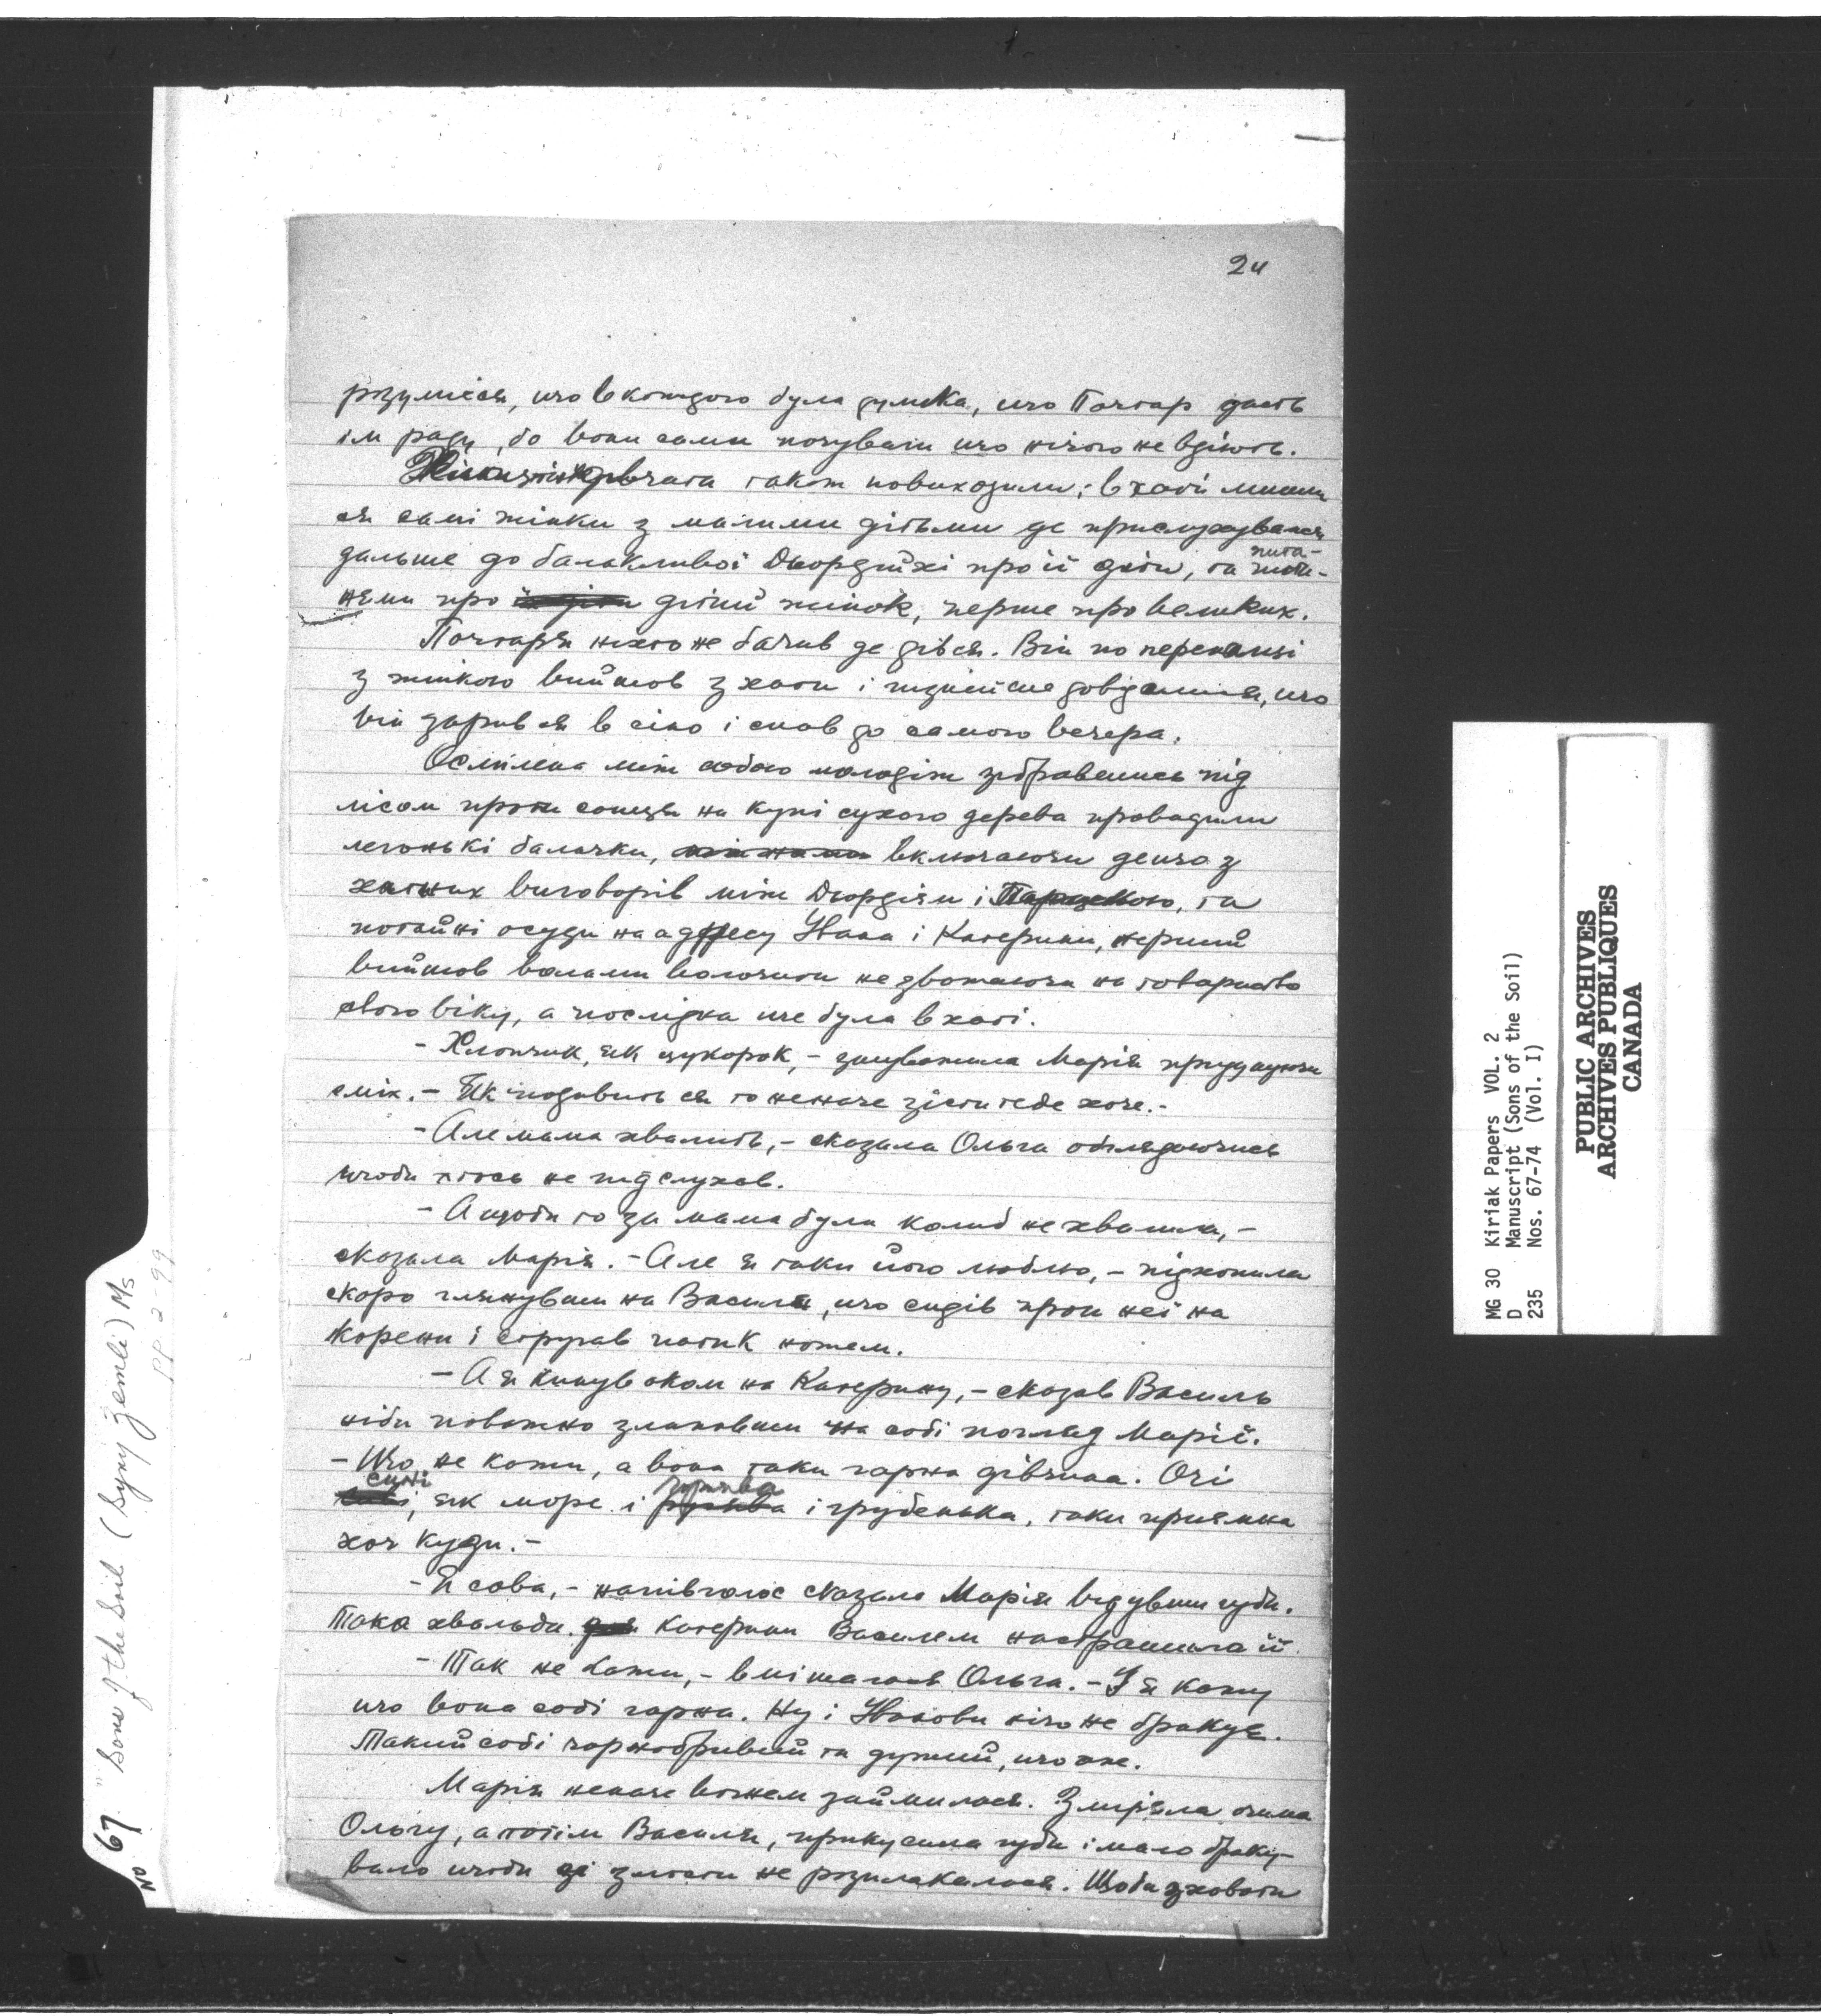 24
розумієся, що в кождого була думка, що Поштар дасть
ім раду, бо вони сами почували що нічого не вдіють.
дівчата також повиходили; в хаті лишили
ся самі жінки з малими дітьми де прислухувалися
дальше до балакливої Дьордійхі про її діти, та
пита-
нями про дітий жінок, перше про великих.
Поштаря ніхто не бачив де дівся. Він по перекалці
з жінкою вийшов з хати і пізнійше довідалися, що
він зарився в сіно і спав до самого вечера.
Осмілена між собою молодіж зібравшись під
лісом проти сонця на купі сухого дерева проводили
легонькі балачки, включаючи дещо з
хатних виговорів між Дьордієм і Параскою, та
потайні осуди на адресу Івана і Катерини, перший
вийшов волами волочити не зважаючи на товариство
свого віку, а послідна ще була в хаті.
- Хлопчик, як цукорок, - зауважила Марія придушуючи
сміх. - Як подивить ся то неначе зісти тебе хоче. -
- Але мама хвалить, - сказала Ольга обглядаючись
щоби хтось не підслухав.
- А щоби то за мама були колиб не хвалила, -
сказала Марія. - Але я таки його люблю, - підхопила
скоро глянувши на Василя, що сидів проти неї на
корени і стругав патик ножем.
- А я кинув оком на Катерину, - сказав Василь
ніби поважно зловивши на собі погляд Марії.
- Що не кажи, а вона таки гарна дівчина. Очі
сині
, як море і і грубенька, таки приємна
хоч куди. -
- Як сова, - напівголос сказала Марія відувши губи.
Така хвальба Катерини Василем настрашила її.
- Так не кажи, - вмішалась Ольга. - І я кажу
що вона собі гарна. Ну і Іванови нічо не бракує.
Такий собі чорнобривий та дужий, що аж.
Марія неначе вогнем займилася. Змірила очима
Ольгу, а потім Василя, прикусила губи і мало браку-
вало щоби зі злости не розплакалася. Щоби зховати
No 67 "Sons of the Soil (Syny Zemli) Ms
PP 2-99
MG 30 Kiriak Papers VOL. 2
D Manuscript (Sons of the Soil)
235 Nos. 67-74 (Vol. I)
PUBLIC ARCHIVES
ARCHIVES PUBLIQUES
CANADA